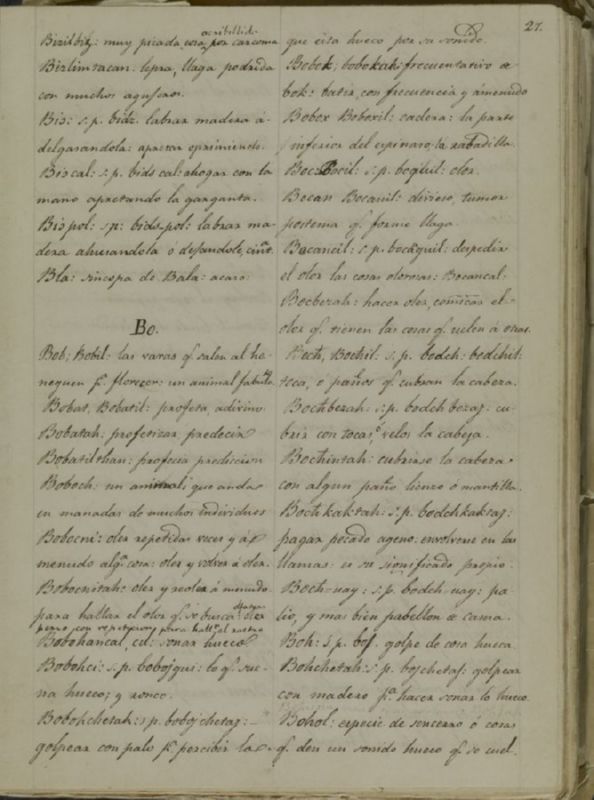 27.
acribillada
Bizilbiz: muy picada cosa, por carcoma
Bizlimzacan. lepra, llaga podrida
con muchos agujeros.
Biz: s.p. bidz. labrar madera á-
delgazandola: apretar exprimiendo.
Bizcal: s.p. bidz cal: ahogar con la
mano apretando la garganta.
Bizpol: s.p: bidz-pol: labrar ma-
dera ahusandola ó
Bla: sincopa de Bala: acaso:
Bo.
Bob; Bobil: las varas q.e salen al he-
nequen p.a florecer: un animal fabulo
Bobat, Bobatil: profeta, adivino.
Bobatah: profetizar, predecir
Bobatilthan: profecia prediccion
Boboch: un animal que anda
en manadas de muchos individuos
Bobocni: oler repetidas veces y á
menudo alg.a cosa: oler y volver á oler.
Bobocnitah: oler y reoler á menudo
para hallar el olor q.e se busca: oler
perro con repeticion para hall.r el rastro
Bobohancal, cil: sonar hueco
Bobohci: s.p. bobojqui: lo q.e sue-
na hueco; y ronco.
Bobohchetah: s.p. bobojchetaj: -
golpear con palo p.a percibir lo
que esta hueco por su sonido.
Bobok; bobokah frecuentativo de
bok: batir, con frecuencia y amenudo
Bobox Boboxil: cadera: la parte
inferior del espinazo, la rabadilla.
Boc Bocil: s.p. boquil: olor.
Bocan Bocanil: divieso, tumor
postema q.e forme llaga.
Bocancil: s.p. bocanquil: despedir
el olor las cosas olorosas: Bocancal.
Bocbezah: hacer oler, el
olor q.e tienen las cosas q.e huelen á otras.
Boch, Bochil: s.p. bodch: bodchil:
toca, ó paños q.e cubran la cabeza.
Bochbezah: s.p. bodch bezaj: cu-
brir con tocas, ó velos la cabeza.
Bochintah: cubrirse la cabeza
con algun paño lienzo ó mantilla.
Bochkaktah: s.p. bodchkaktaj:
pagar pecado ageno: envolverse en las
llamas: es su significado propio.
Boch-nay: s.p. bodch-nay: pa-
lio, y mas bien pabellon de cama.
Boh: s.p. boj. golpe de cosa hueca.
Bohchetah: s.p. bojchetaj: golpear
con madero p.a hacer sonar lo hueco.
Bohol: especie de sencerro ó cosas
q.e den un sonido hueco q.e se cuel-